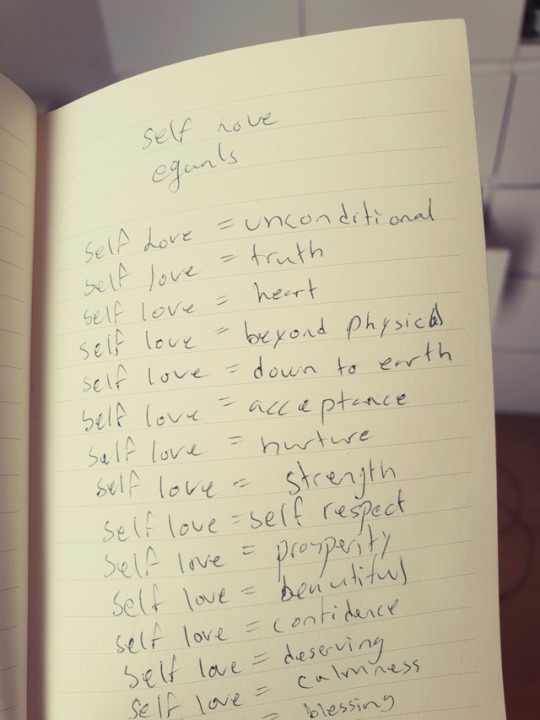 self Love
equals
self Love = unconditional
self love = truth
self love = heart
self love = beyond physical
self love = down to earth
self love = acceptance
self love = nurture
self love = strength
self love = self respect
self love = prosperity
self love = beautiful
self love = confidence
self love = deserving
self love = calmness
= blessing